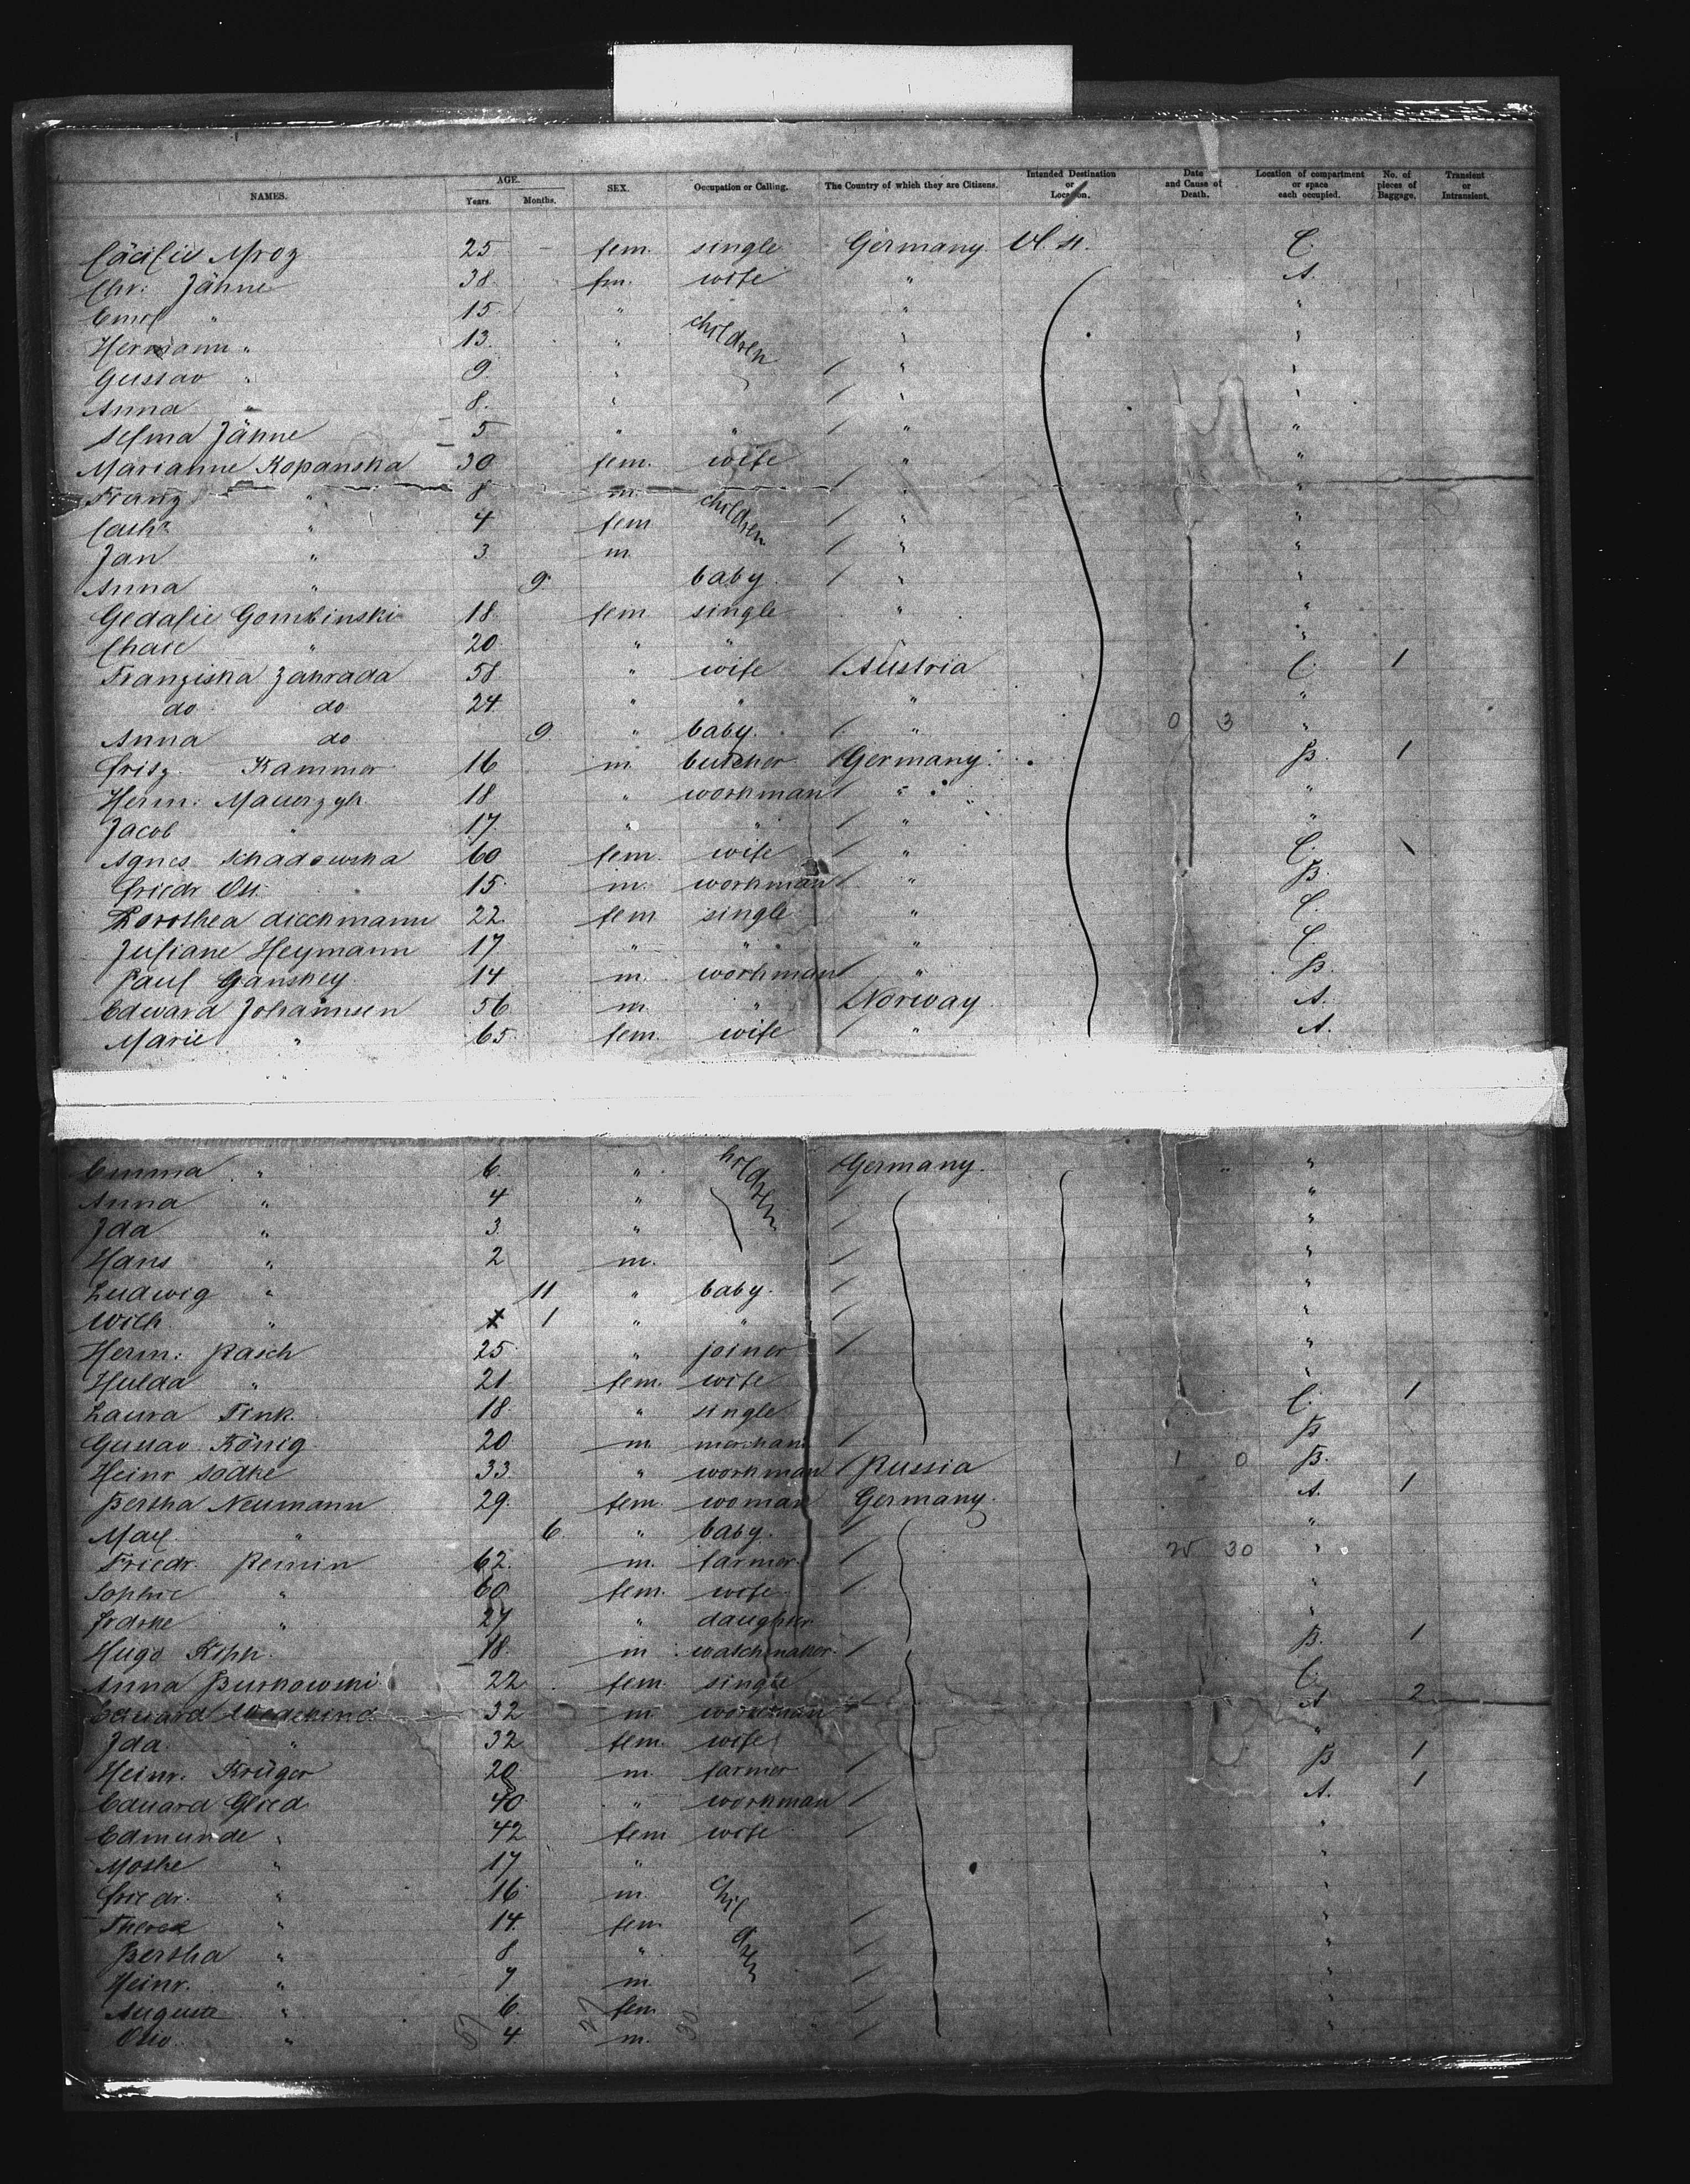 NAMES. AGE. Years. Months. SEX. Occupation or Calling. The Country of which they are Citizens. Intended Destination or Location. Date and Cause of Death. Location of compartment or space each occupied. No. of pieces of Baggage. Transient or Intransient.
Cäcilie Mroz 25 - fem. single Germany C.
Chr: Jähne 38 fm. wife " A.
Emil " 15 " " "
Hermann " 13 " children " "
Gustav " 9 " " "
Anna " 8 " " "
Selma Jähne 5 " " " "
Marianne Kopanska 30 fem. wife " "
Franz " 8 m. children " "
Cath " 4 fem " "
Jan " 3 m. " "
Anna " 9 baby. " "
Gedalie Gombinski 18 fem single " "
Chaie " 20 " " "
Franziska Zahrada 58 " wife Austria C. 1
do do 24 " " " "
Anna do 9 " baby. " 0 3 "
Fritz Kammer 16 m butcher Germany B. 1
Herm: 18 " workman " "
Jacob " 17 " " " "
Agnes Schadowska 60 fem. wife " C.
Friedr Ott 15 m. workman " B.
Dorothea dieckmann 22 fem single " C.
Juliane Heymann 17 " " " C.
Paul Ganskey 14 m. workman " B.
Edward Johannsen 56 m. " Norway A.
Marie " 65 fem. wife " A.
Emma " 6 " Germany. "
Anna " 4 " "
Ida " 3 " "
Hans " 2 m. "
Ludwig " 11 " baby. "
Wilh " 1 " " "
Herm: Rasch 25 " joiner "
Hulda " 21 fem. wife "
Laura Fink 18 " single C. 1
Gustav König 20 m B
Heinr Sadke 33 " workman Russia 1 0 B.
Bertha Neumann 29 fem. woman Germany. A. 1
Max " 6 " baby. "
Friedr. Remin 62 m. farmer 30 "
Sophie " 60 fem. wife "
" 27 " daughter "
Hugo 18 m watchmaker B. 1
Anna Burkowski 22 fem. single C.
Eduard Wedekind 32 m workman A 2
Ida " 32 fem. wife "
Heinr. Krüger 20 m. farmer B 1
Eduard 40 " workman A. 1
Edmunde " 42 fem wife "
" 17 " "
Friedr. " 16 m. children "
Therese " 14 fem "
Bertha " 8 " "
Heinr. " 7 m. "
Auguste " 6 fem "
Otto " 4 m. "